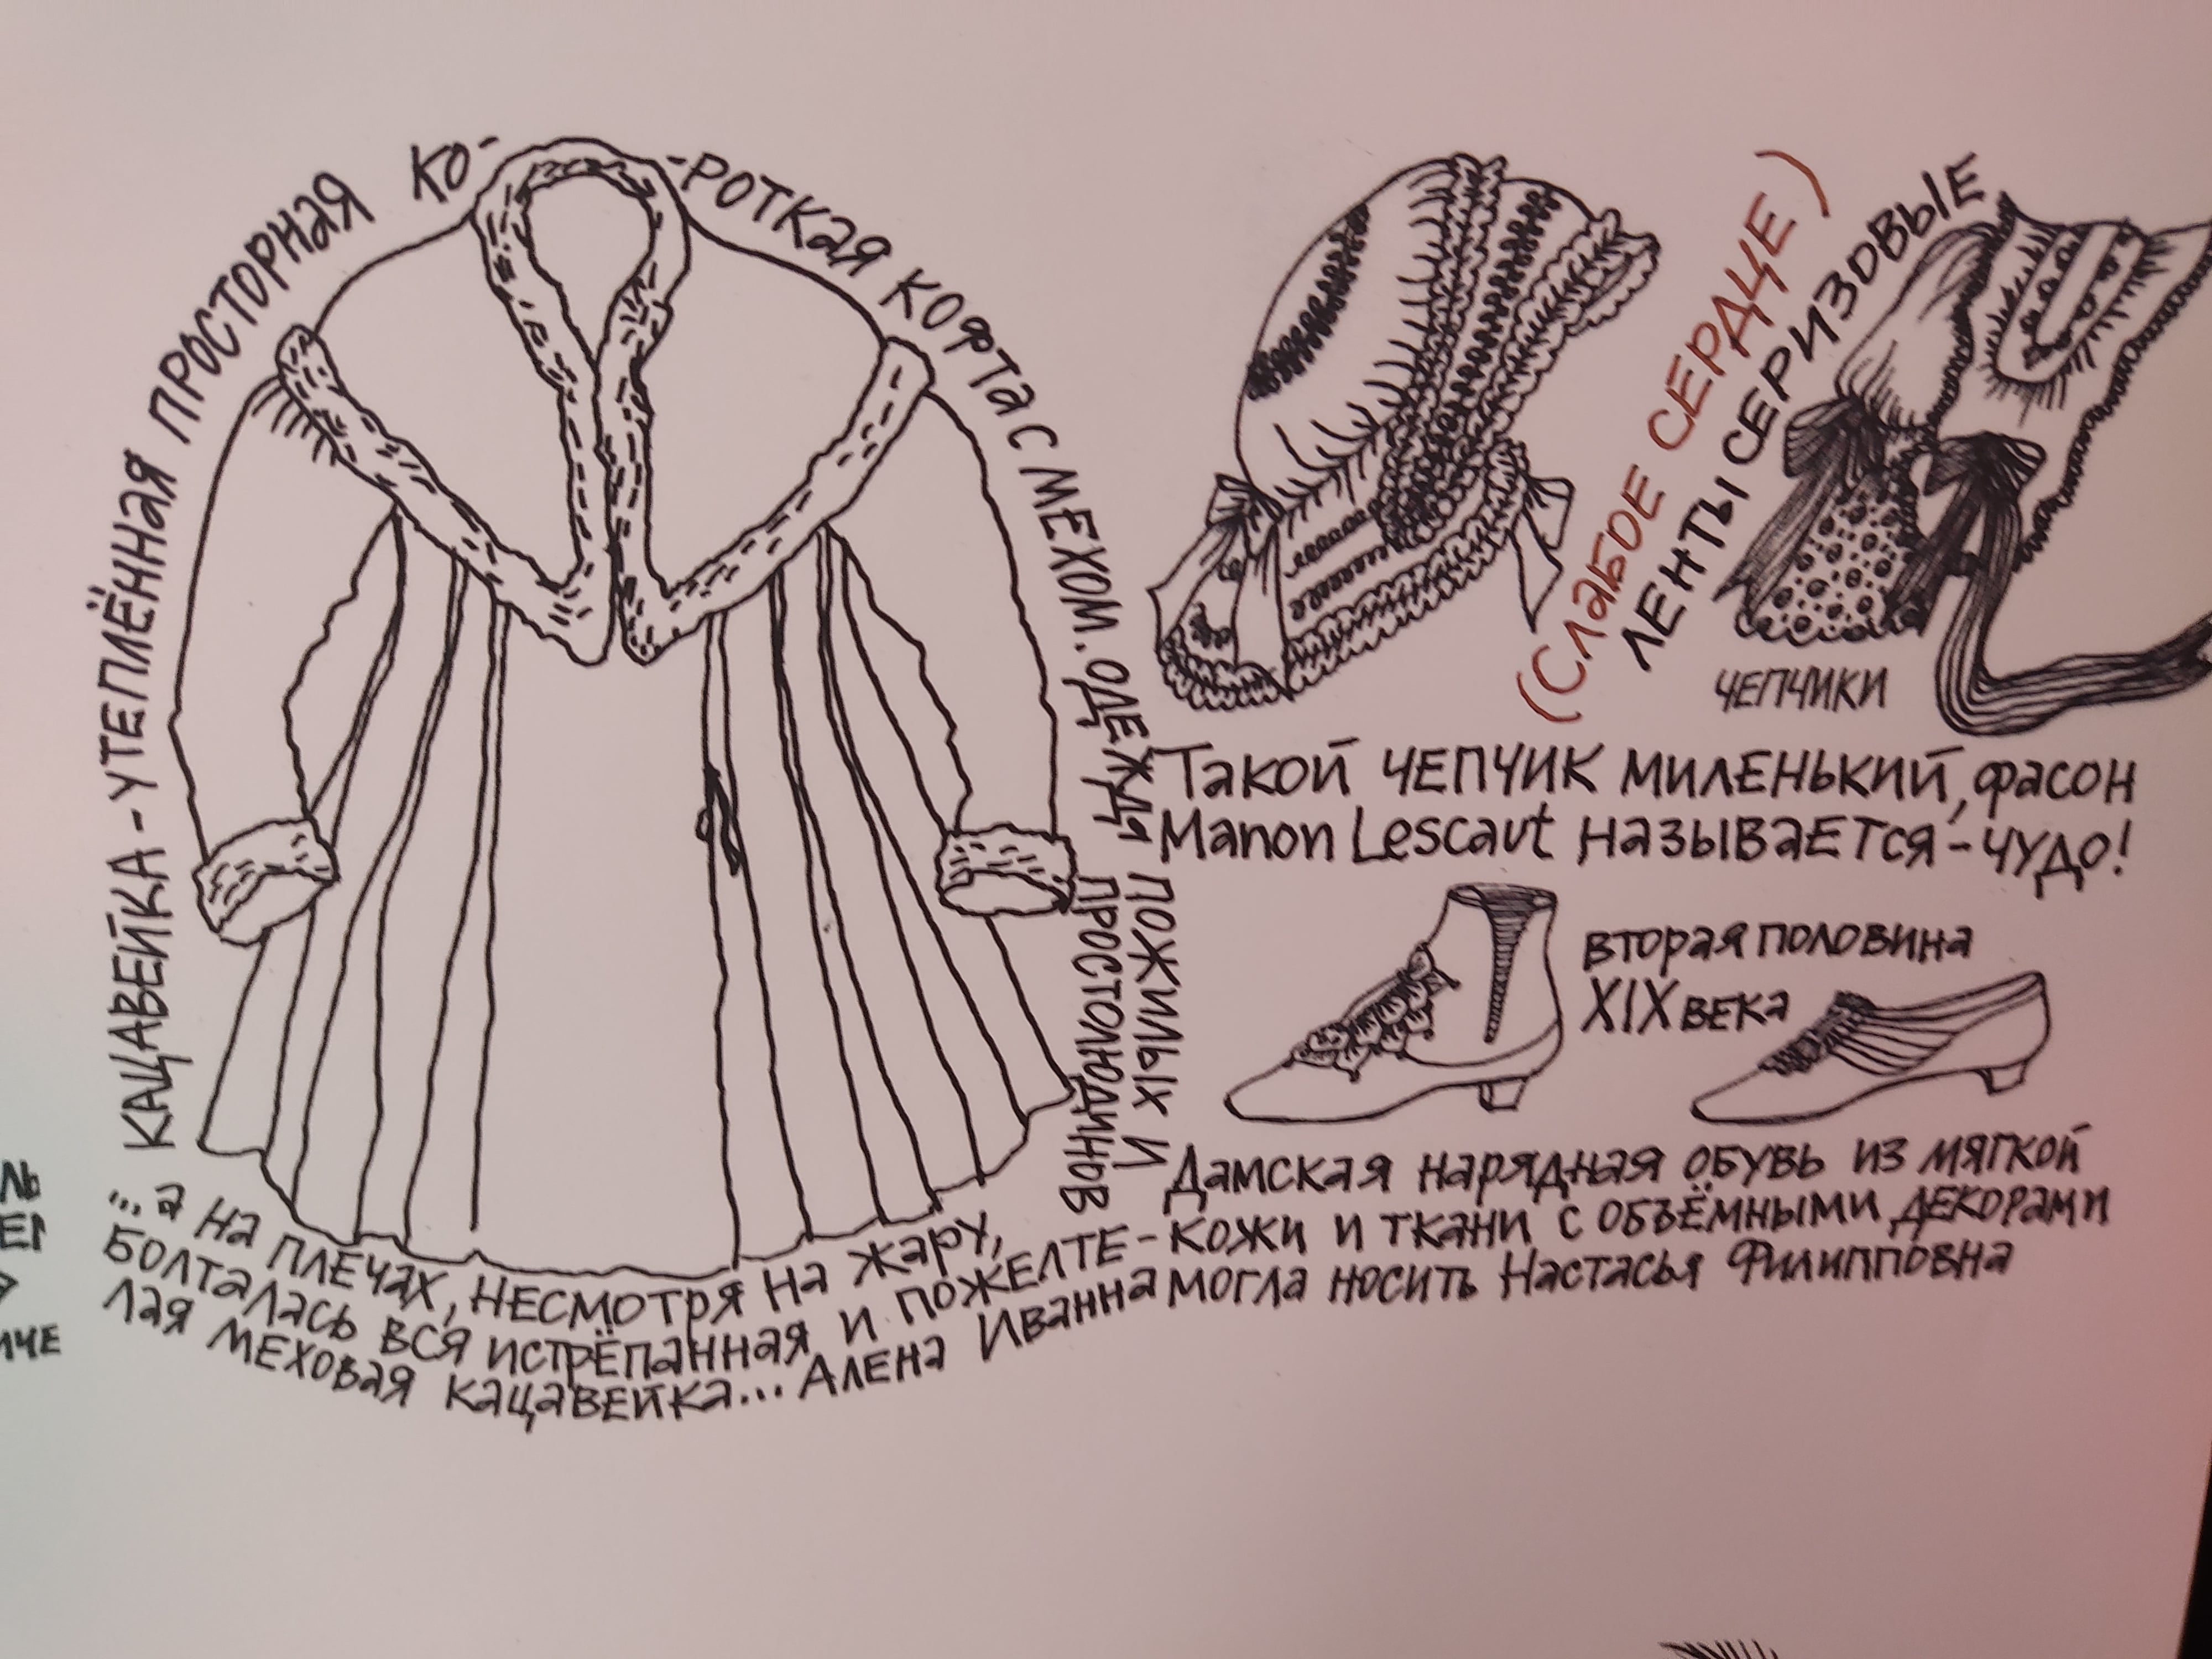 КАЦАВЕЙКА - УТЕПЛЁННАЯ ПРОСТОРНАЯ КО-
-РОТКАЯ КОФТА С МЕХОМ. ОДЕЖДА
ПОЖИЛЫХ И
ПРОСТОЛЮДИНОВ
...а на плечах, несмотря на жару,
болталась вся истрёпанная и пожелте-
лая меховая кацавейка... Алена Иванна
(Слабое сердце)
ЛЕНТЫ СЕРИЗОВЫЕ
ЧЕПЧИКИ
Такой чепчик миленький, фасон
Manon Lescaut называется - чудо!
вторая половина
XIX века
Дамская нарядная обувь из мягкой
кожи и ткани с объёмными декорами
могла носить Настасья Филипповна